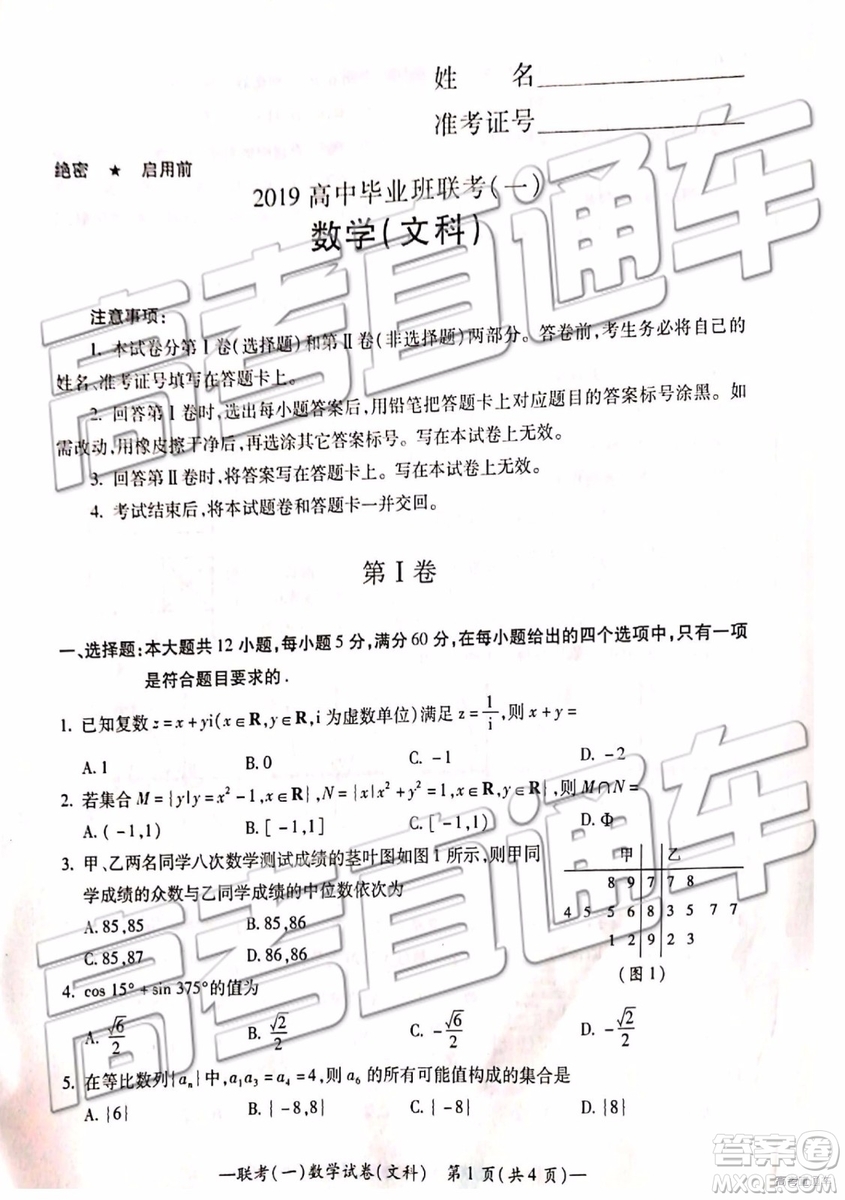 姓　　名
准考证号
绝密　★　启用前
2019 高中毕业班联考(一)
数学(文科)
注意事项:
1. 本试卷分第Ⅰ卷(选择题)和第Ⅱ卷(非选择题)两部分。答卷前,考生务必将自己的
姓名、准考证号填写在答题卡上。
2. 回答第Ⅰ卷时,选出每小题答案后,用铅笔把答题卡上对应题目的答案标号涂黑。如
需改动,用橡皮擦干净后,再选涂其它答案标号。写在本试卷上无效。
3. 回答第Ⅱ卷时,将答案写在答题卡上。写在本试卷上无效。
4. 考试结束后,将本试题卷和答题卡一并交回。
第Ⅰ卷
一、选择题:本大题共 12 小题,每小题 5 分,满分 60 分,在每小题给出的四个选项中,只有一项
是符合题目要求的.
1. 已知复数 z=x+yi(x∈R,y∈R,i 为虚数单位)满足 z=1/i,则 x+y=
A. 1　B. 0　C. -1　D. -2
2. 若集合 M={y|y=x²-1,x∈R},N={x|x²+y²=1,x∈R},则 M∩N=
A. (-1,1)　B. [-1,1]　C. [-1,1)　D. Φ
3. 甲、乙两名同学八次数学测试成绩的茎叶图如图 1 所示,则甲同
学成绩的众数与乙同学成绩的中位数依次为
A. 85,85　B. 85,86
C. 85,87　D. 86,86
甲　乙
8 9 7 7 8
4 5 5 6 8 3 5 7 7
1 2 9 2 3
(图 1)
4. cos 15°+sin 375°的值为
A. √6/2　B. √2/2　C. -√6/2　D. -√2/2
5. 在等比数列{aₙ}中,a₁a₃=a₄=4,则 a₆ 的所有可能值构成的集合是
A. {6}　B. {-8,8}　C. {-8}　D. {8}
—联考(一)数学试卷(文科)　第 1 页(共 4 页)—
高考直通车
高考直通车
答案圈
MXQE.COM